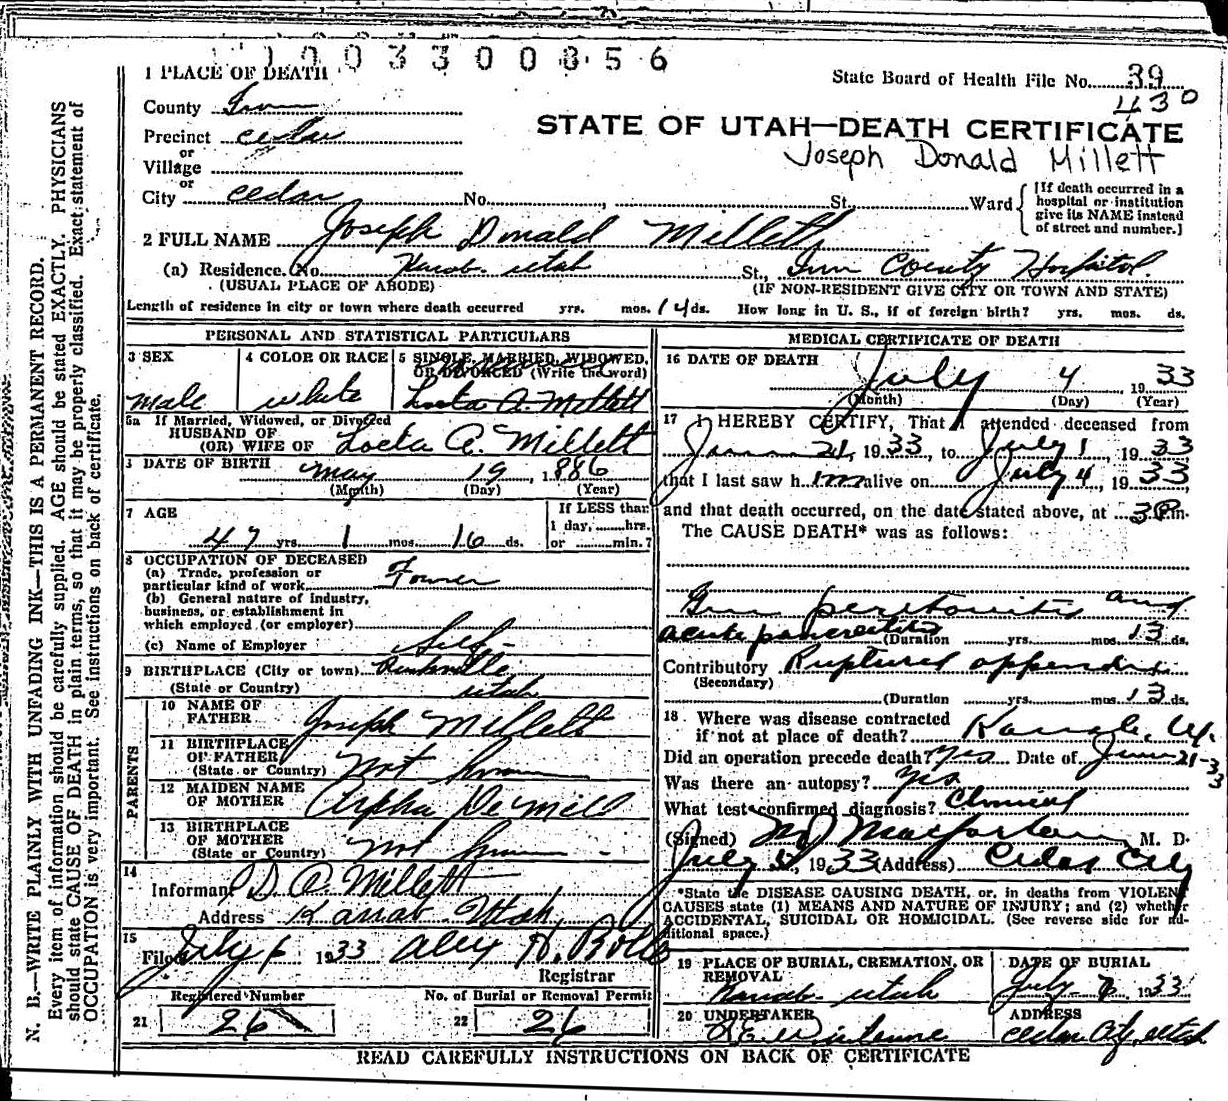 1003300856
1 PLACE OF DEATH
State Board of Health File No. 39
County Iron
430
Precinct Cedar
STATE OF UTAH—DEATH CERTIFICATE
or
Village
Joseph Donald Millett
or
City Cedar No. , St., Ward
[If death occurred in a
hospital or institution
give its NAME instead
of street and number.]
2 FULL NAME Joseph Donald Millett
(a) Residence. (No. Kanab Utah St., Iron County Hospital.
(USUAL PLACE OF ABODE) (IF NON-RESIDENT GIVE CITY OR TOWN AND STATE)
Length of residence in city or town where death occurred yrs. mos. 14 ds. How long in U. S., if of foreign birth? yrs. mos. ds.
PERSONAL AND STATISTICAL PARTICULARS
3 SEX 4 COLOR OR RACE 5 SINGLE, MARRIED, WIDOWED,
OR DIVORCED (Write the word)
male white Loeta A. Millett
5a If Married, Widowed, or Divorced
HUSBAND OF
(OR) WIFE OF Loeta A. Millett
6 DATE OF BIRTH May 19, 1886
(Month) (Day) (Year)
7 AGE
If LESS than
1 day, hrs.
or min.?
47 yrs. 1 mos. 16 ds.
8 OCCUPATION OF DECEASED
(a) Trade, profession or
particular kind of work
(b) General nature of industry,
business, or establishment in
which employed (or employer)
(c) Name of Employer Self
9 BIRTHPLACE (City or town) Rockville
(State or Country) Utah
PARENTS
10 NAME OF
FATHER Joseph Millett
11 BIRTHPLACE
OF FATHER
(State or Country) Not known
12 MAIDEN NAME
OF MOTHER Orpha DeMill
13 BIRTHPLACE
OF MOTHER
(State or Country) Not known
14
Informant D. A. Millett
Address Kanab Utah
15
Filed July 6 1933 Alex H. Rollo
Registrar
Registered Number
21 26
No. of Burial or Removal Permit
22 26
MEDICAL CERTIFICATE OF DEATH
16 DATE OF DEATH
July 4 1933
(Month) (Day) (Year)
17 I HEREBY CERTIFY, That I attended deceased from
June 21, 1933, to July 1, 1933
that I last saw him alive on July 4, 1933,
and that death occurred, on the date stated above, at 3 P.m.
The CAUSE DEATH* was as follows:
Gen peritonitis and
acute pancreatitis (Duration yrs. mos. 13 ds.
Contributory Ruptured appendix
(Secondary)
(Duration yrs. mos. 13 ds.
18 Where was disease contracted
if not at place of death? Kanab, Ut.
Did an operation precede death? Yes Date of June 21-33
Was there an autopsy? Yes
What test confirmed diagnosis? Clinical
(Signed) M J Macfarlane M. D.
July 5, 1933 (Address) Cedar City
*State the DISEASE CAUSING DEATH, or, in deaths from VIOLENT
CAUSES state (1) MEANS AND NATURE OF INJURY; and (2) whether
ACCIDENTAL, SUICIDAL OR HOMICIDAL. (See reverse side for additional space.)
19 PLACE OF BURIAL, CREMATION, OR
REMOVAL
Kanab Utah
DATE OF BURIAL
July 7 1933
20 UNDERTAKER
ADDRESS
Cedar City, Utah
READ CAREFULLY INSTRUCTIONS ON BACK OF CERTIFICATE
N. B.—WRITE PLAINLY WITH UNFADING INK—THIS IS A PERMANENT RECORD.
Every item of information should be carefully supplied. AGE should be stated EXACTLY. PHYSICIANS
should state CAUSE OF DEATH in plain terms, so that it may be properly classified. Exact statement of
OCCUPATION is very important. See instructions on back of certificate.